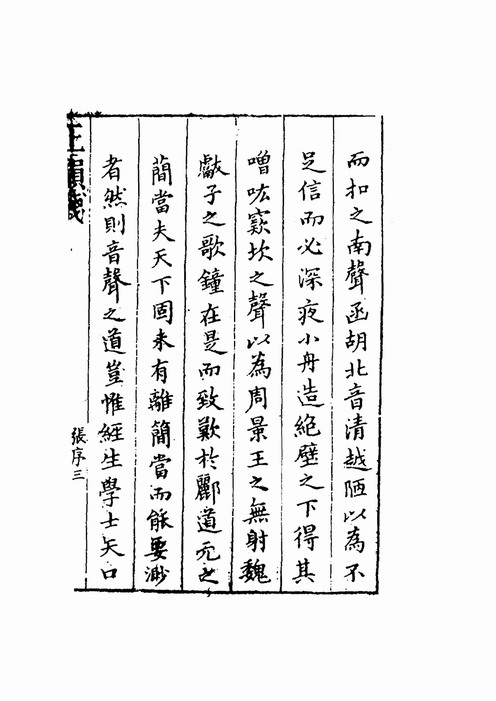 而扣之南聲函胡北音清越陋以為不
足信而必深夜小舟造絕壁之下得其
噌吰窾坎之聲以為周景王之無射魏
獻子之歌鐘在是而致歎於酈道元之
簡當夫天下固未有離簡當而能要渺
者然則音聲之道豈惟經生學士矢口
韻
張序三